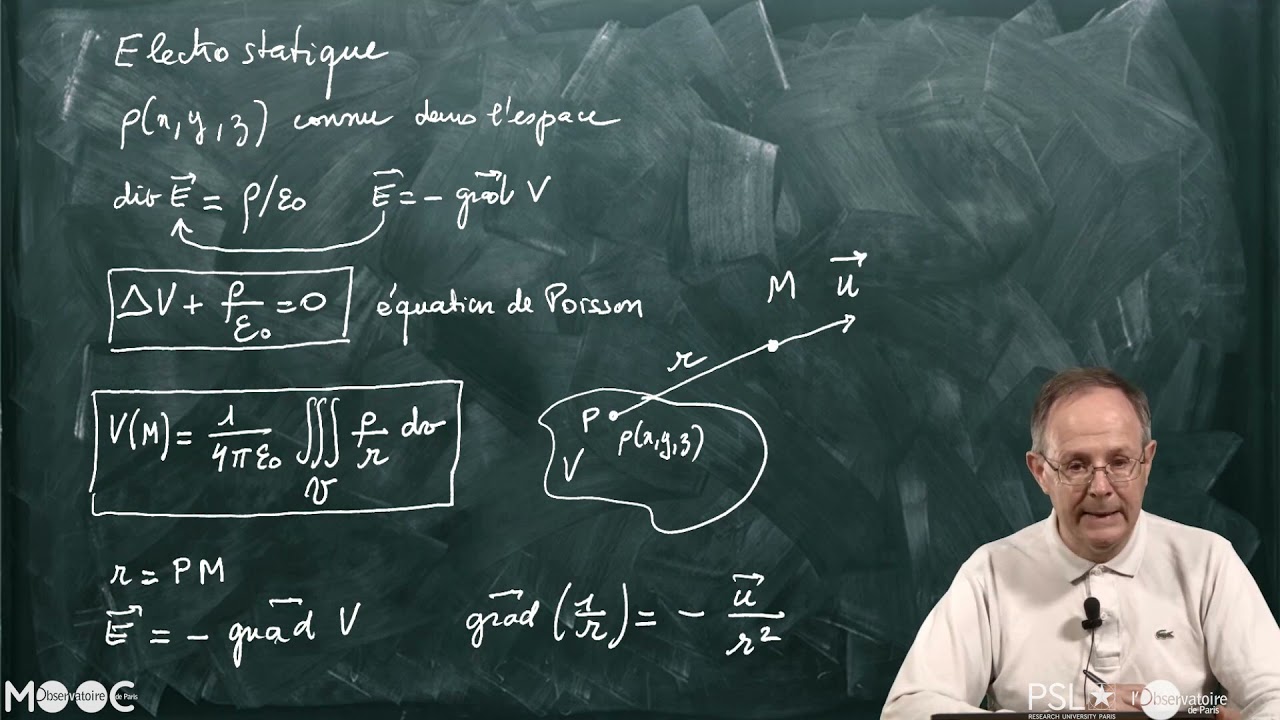 Electrostatique
ρ(x,y,z) connue dans l'espace
div E⃗ = ρ/ε₀ E⃗ = - grad⃗ V
ΔV + ρ/ε₀ = 0 équation de Poisson
V(M) = 1/4πε₀ ∭_v ρ/r dv
M u⃗
r
P
ρ(x,y,z)
V
r = PM
E⃗ = - grad⃗ V grad⃗ (1/r) = - u⃗/r²
MOOC Observatoire de Paris
PSL★
RESEARCH UNIVERSITY PARIS
l'Observatoire
de Paris